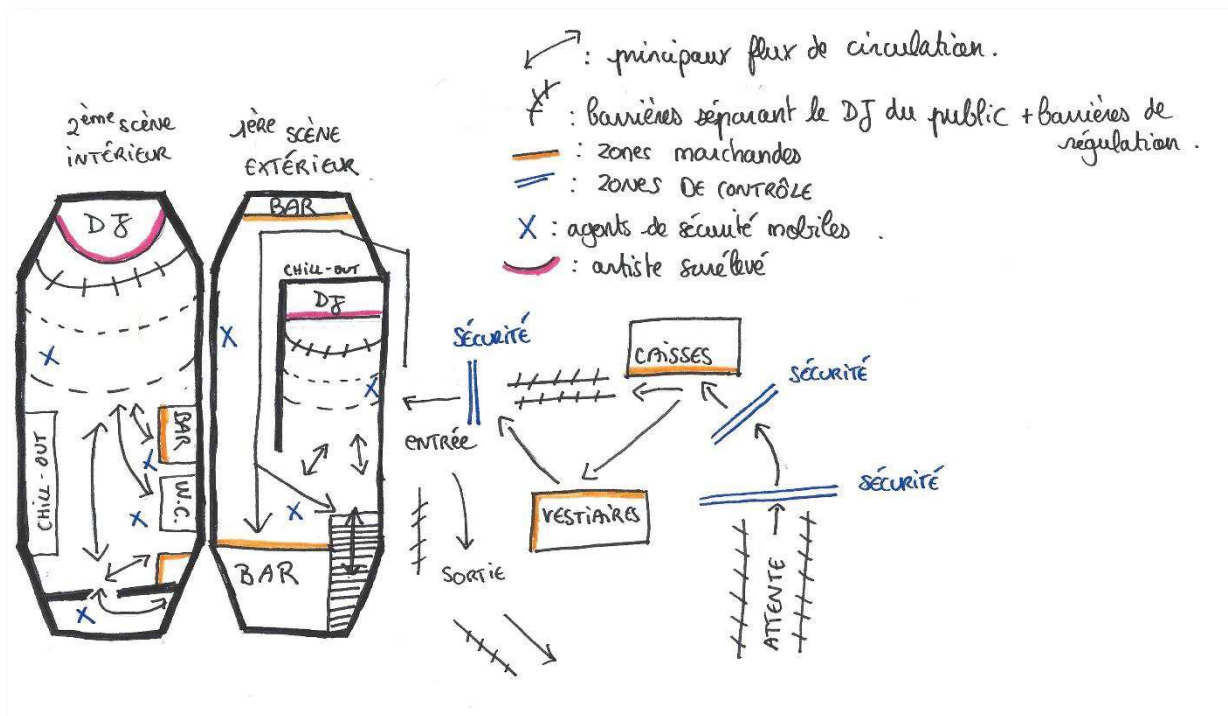 : principaux flux de circulation.
: barrières séparant le DJ du public + barrières de
régulation.
: zones marchandes
: ZONES DE CONTRÔLE
X : agents de sécurité mobiles.
: artiste surélevé
2ème SCÈNE
INTÉRIEUR
DJ
CHILL-OUT
BAR
W.C.
1ÈRE SCÈNE
EXTÉRIEUR
BAR
CHILL-OUT
DJ
BAR
SÉCURITÉ
ENTRÉE
SORTIE
CAISSES
VESTIAIRES
SÉCURITÉ
SÉCURITÉ
ATTENTE